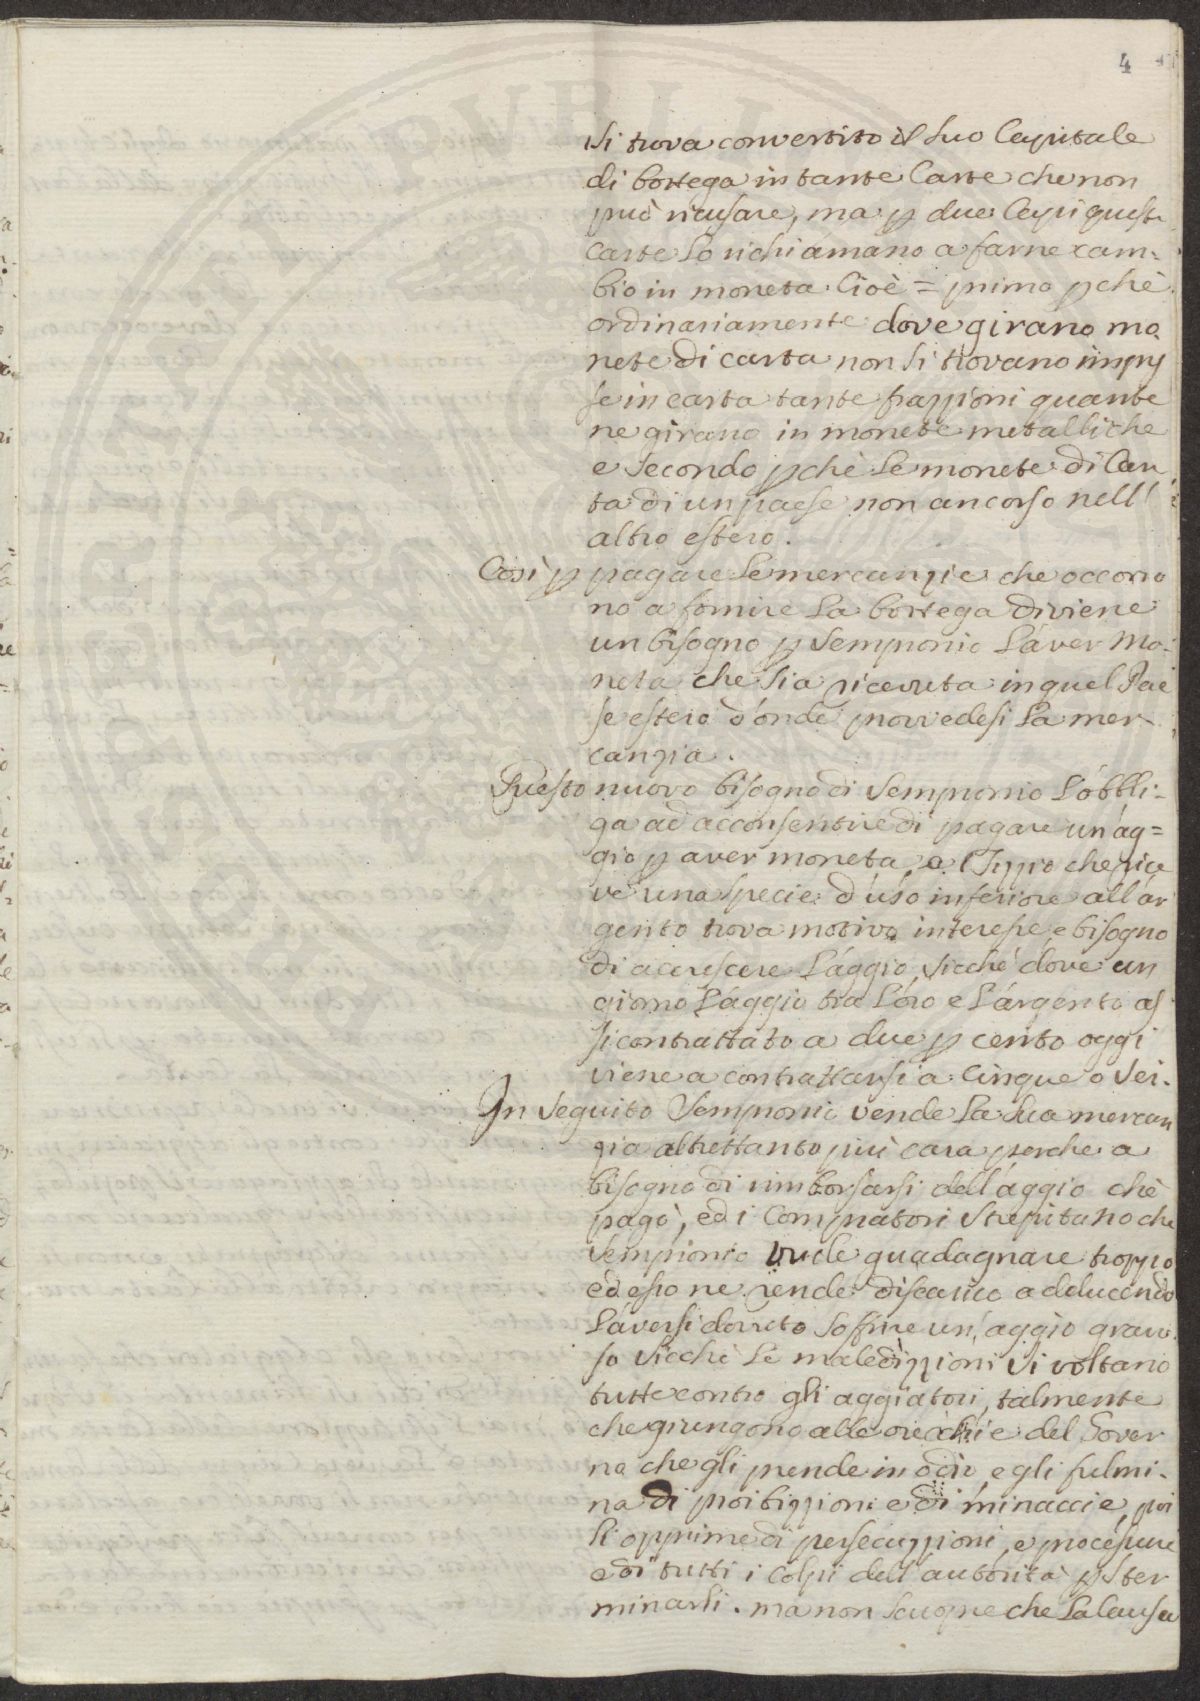 4
si trova convertito il suo Capitale
di bottega in tante Carte che non
può ricusare, ma p due Capi queste
carte lo richiamano a farne cam-
bio in moneta. Cioè = primo pchè
ordinariamente dove girano mo
nete di carta non si trovano impres
se in carta tante frazzioni quante
ne girano in monete metalliche
e secondo pchè le monete di Car
ta di un paese non an corso nell'
altro estero.
Così p pagare le mercanzie che occorro
no a fornire la bottega diviene
un bisogno p Sempronio l'aver mo-
neta che sia ricevuta in quel Pae
se estero d'onde provvedesi la mer-
canzia.
Questo nuovo bisogno di Sempronio l'obbli-
ga ad acconsentire di pagare un ag=
gio p aver moneta, e Tizzio che rice
ve una specie d'uso inferiore all'ar
gento trova motivo interesse e bisogno
di accrescere l'aggio, sicché dove un
giorno l'aggio tra l'oro e l'argento as
si contrattato a due p cento oggi
viene a contrattarsi a cinque o sei.
In seguito Sempronio vende la sua mercan
zia altrettanto più cara perche a
bisogno di rimborsarsi dell'aggio che
pagò, ed i Compratori strepitano che
Sempronio vuole guadagnare troppo
ed esso ne rende discarico adducendo
l'aversi dovuto soffrire un aggio gravo
so sicchè le maledizzioni si voltano
tutte contro gli aggiatori, talmente
che giungono alle orecchie del Gover
no che gli prende in odio, e gli fulmi-
na di proibizzioni e di minaccie, poi
li opprime di persecuzzioni, e procesure
e di tutti i colpi dell'autorità p ster
minarli. ma non scuopre che la Causa